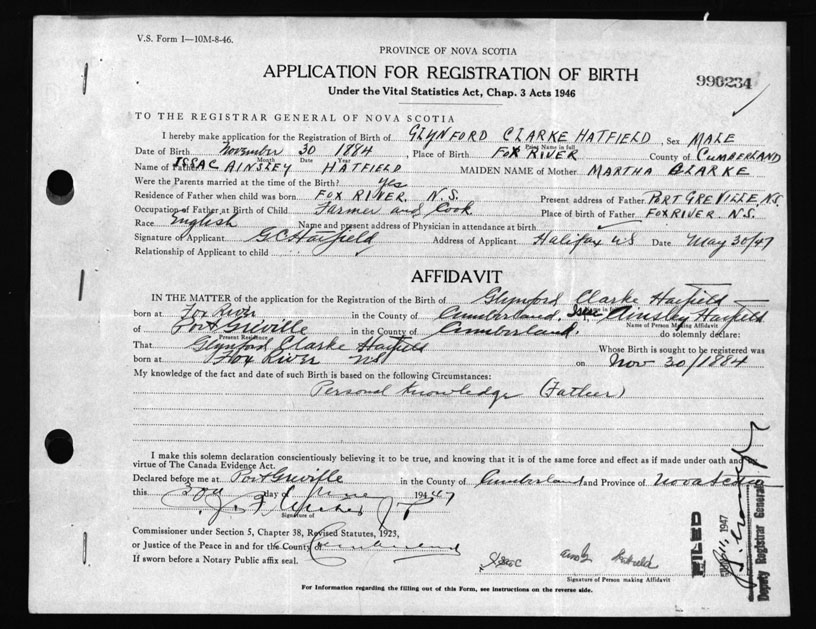 V.S. Form 1—10M-8-46.
PROVINCE OF NOVA SCOTIA
APPLICATION FOR REGISTRATION OF BIRTH
990234
Under the Vital Statistics Act, Chap. 3 Acts 1946
TO THE REGISTRAR GENERAL OF NOVA SCOTIA
I hereby make application for the Registration of Birth of GLYNFORD CLARKE HATFIELD, Sex MALE
Print Name in full
Date of Birth November 30 1884, Place of Birth FOX RIVER County of CUMBERLAND
Month Date Year
Name of Father ISSAC AINSLEY HATFIELD MAIDEN NAME of Mother MARTHA CLARKE
Were the Parents married at the time of Birth? yes
Residence of Father when child was born FOX RIVER, N.S. Present address of Father PORT GREVILLE, N.S.
Occupation of Father at Birth of Child Farmer and Cook Place of birth of Father FOX RIVER. N.S.
Race English Name and present address of Physician in attendance at birth
Signature of Applicant G C Hatfield Address of Applicant Halifax NS Date May 30/47
Relationship of Applicant to child
AFFIDAVIT
IN THE MATTER of the application for the Registration of the Birth of Glynford Clarke Hatfield
born at Fox River in the County of Cumberland. Isaac Ainsley Hatfield
of Port Greville in the County of Cumberland. do solemnly declare:
Present Residence Name of Person Making Affidavit
That Glynford Clarke Hatfield Whose Birth is sought to be registered was
born at Fox River NS on Nov 30/1884
My knowledge of the fact and date of such Birth is based on the following Circumstances:
Personal Knowledge (Father)
I make this solemn declaration conscientiously believing it to be true, and knowing that it is of the same force and effect as if made under oath and by
virtue of The Canada Evidence Act.
Declared before me at Port Greville in the County of Cumberland and Province of Nova Scotia
this 30th day of June 1947
Signature of
Commissioner under Section 5, Chapter 38, Revised Statutes, 1923,
or Justice of the Peace in and for the County of Cumberland
If sworn before a Notary Public affix seal.
Isaac Hatfield
Signature of Person making Affidavit
For Information regarding the filling out of this Form, see instructions on the reverse side.
FILED
1947
Deputy Registrar General